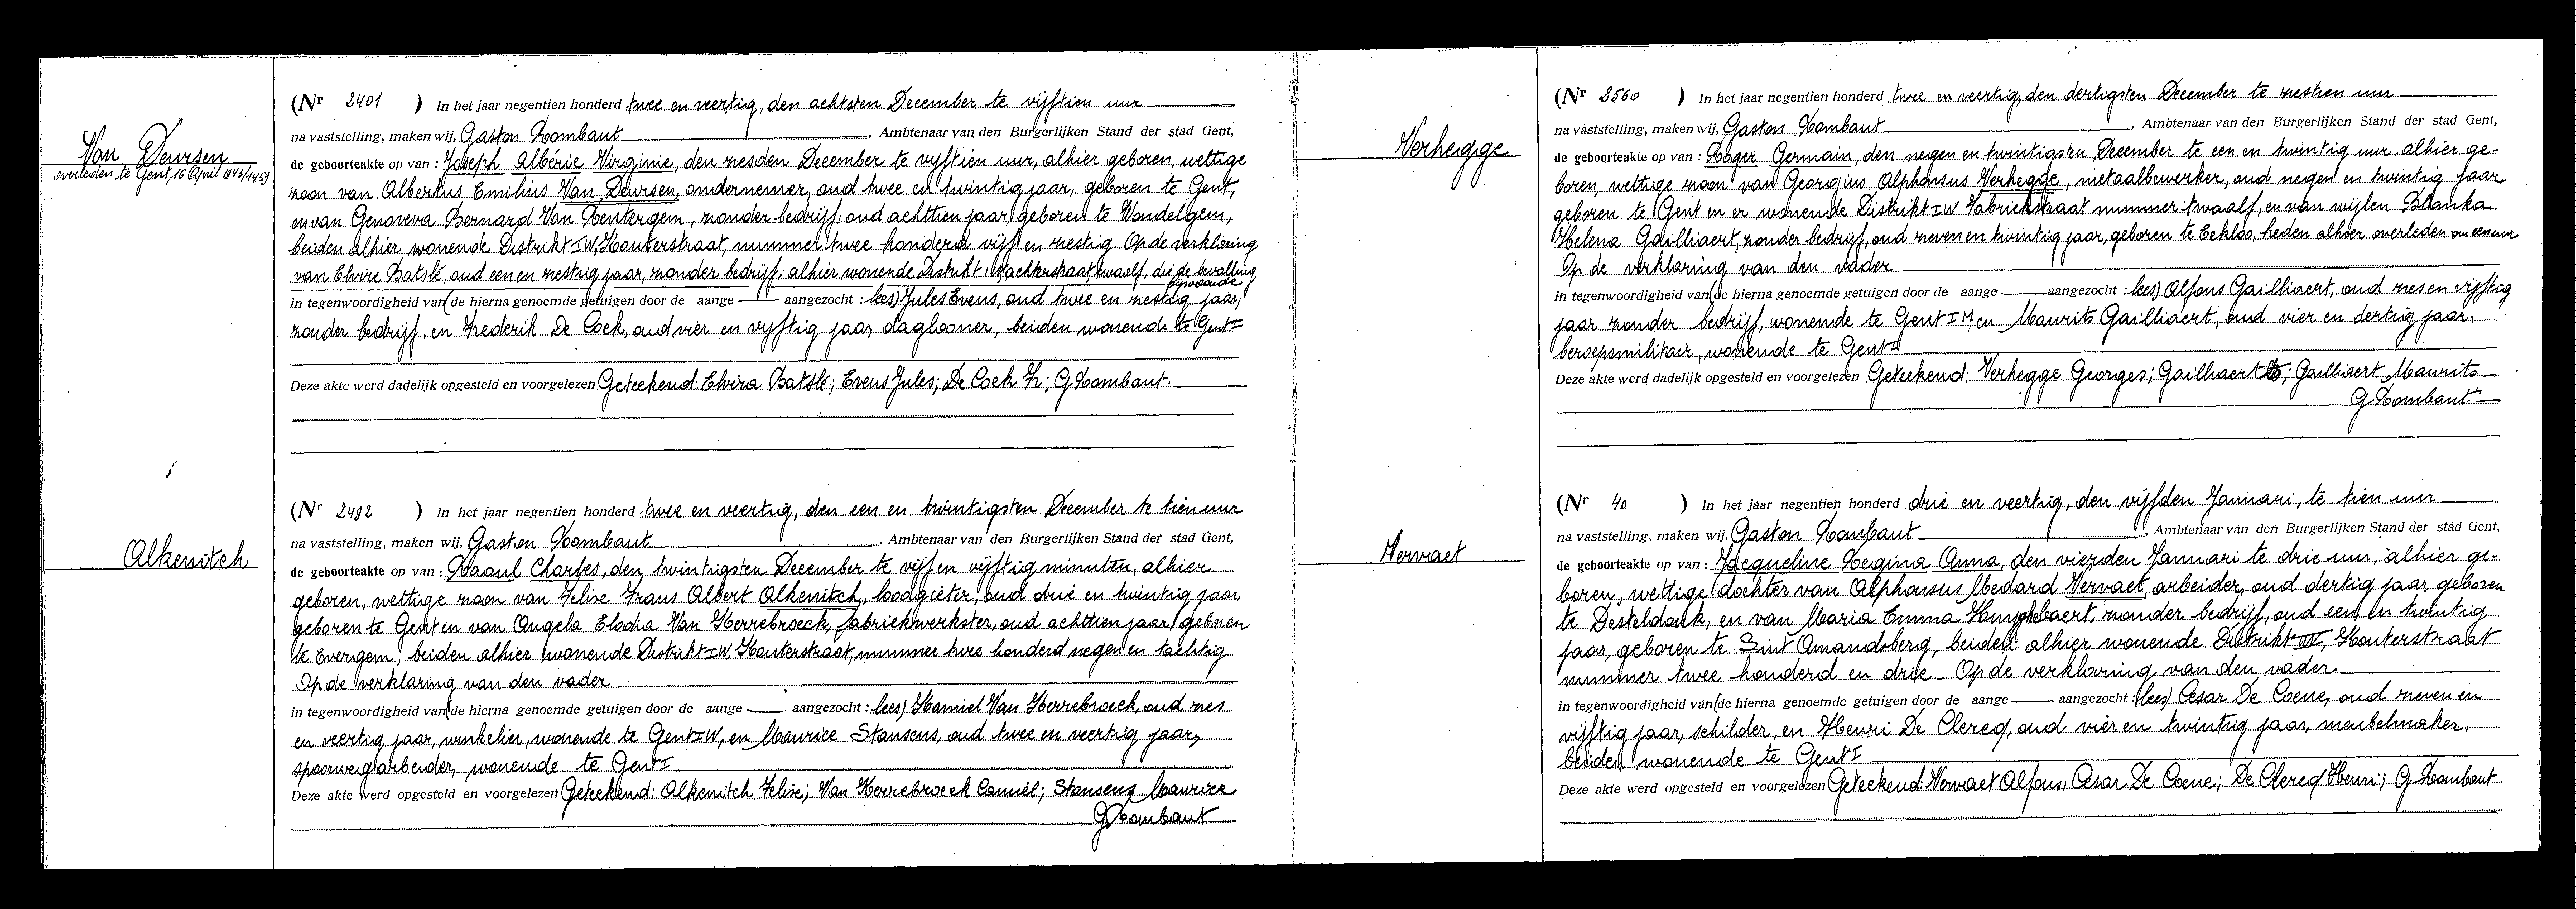 Van Deursen
overleden te Gent, 16 April 1943/1459
(Nr 2401 ) In het jaar negentien honderd twee en veertig, den achtsten December te vijftien uur
na vaststelling, maken wij, Gaston Rombaut , Ambtenaar van den Burgerlijken Stand der stad Gent,
de geboorteakte op van : Joseph Albéric Virginie, den zesden December te vijftien uur, alhier geboren, wettige
zoon van Albertus Emilius Van Deursen, ondernemer, oud twee en twintig jaar, geboren te Gent,
en van Genoveva Bernard Van Rentergem, zonder bedrijf, oud achttien jaar, geboren te Wondelgem,
beiden alhier wonende Distrikt I W, Houterstraat, nummer twee honderd vijf en zestig. Op de verklaring
van Elvire Batslé, oud een en zestig jaar, zonder bedrijf, alhier wonende Distrikt I, Wachterstraat, twaalf, die de bevalling
bijwoonde
in tegenwoordigheid van (de hierna genoemde getuigen door de aange — aangezocht : lees) Jules Evens, oud twee en zestig jaar,
zonder bedrijf, en Frederik De Cock, oud vier en vijftig jaar, daglooner, beiden wonende te Gent I
Deze akte werd dadelijk opgesteld en voorgelezen Geteekend: Elvira Batslé; Evens Jules; De Cock Fr; G Rombaut.
Alkenitch
(Nr 2492 ) In het jaar negentien honderd twee en veertig, den een en twintigsten December te tien uur
na vaststelling, maken wij, Gaston Rombaut , Ambtenaar van den Burgerlijken Stand der stad Gent,
de geboorteakte op van : Raoul Charles, den twintigsten December te vijf en vijftig minuten, alhier
geboren, wettige zoon van Felix Frans Albert Alkenitch, loodgieter, oud drie en twintig jaar
geboren te Gent en van Angela Elodia Van Herrebroeck, fabriekwerkster, oud achttien jaar, geboren
te Evergem, beiden alhier wonende Distrikt I W, Houterstraat, nummer twee honderd negen en tachtig
Op de verklaring van den vader
in tegenwoordigheid van (de hierna genoemde getuigen door de aange — aangezocht : lees) Kamiel Van Herrebroeck, oud zes
en veertig jaar, winkelier, wonende te Gent I W, en Maurice Stansens, oud twee en veertig jaar,
spoorwegarbeider, wonende te Gent I
Deze akte werd opgesteld en voorgelezen Geteekend: Alkenitch Felix; Van Herrebroeck Camiel; Stansens Maurice
G Rombaut
Verhegge
(Nr 2560 ) In het jaar negentien honderd twee en veertig, den dertigsten December te zestien uur
na vaststelling, maken wij, Gaston Rombaut , Ambtenaar van den Burgerlijken Stand der stad Gent,
de geboorteakte op van : Roger Germain, den negen en twintigsten December te een en twintig uur, alhier ge-
boren, wettige zoon van Georgius Alphonsus Verhegge, metaalbewerker, oud negen en twintig jaar,
geboren te Gent en er wonende Distrikt I W Fabriekstraat nummer twaalf, en van wijlen Blanka
Helena Gailliaert, zonder bedrijf, oud zeven en twintig jaar, geboren te Eekloo, heden alhier overleden om een uur
Op de verklaring van den vader
in tegenwoordigheid van (de hierna genoemde getuigen door de aange — aangezocht : lees) Alfons Gailliaert, oud zes en vijftig
jaar zonder bedrijf, wonende te Gent I M, en Maurits Gailliaert, oud vier en dertig jaar,
beroepsmilitair, wonende te Gent I
Deze akte werd dadelijk opgesteld en voorgelezen Geteekend: Verhegge Georges; Gailliaert ; Gailliaert Maurits
G Rombaut
Vervaet
(Nr 40 ) In het jaar negentien honderd drie en veertig, den vijfden Januari, te tien uur
na vaststelling, maken wij, Gaston Rombaut , Ambtenaar van den Burgerlijken Stand der stad Gent,
de geboorteakte op van : Jacqueline Regina Anna, den vierden Januari te drie uur, alhier ge-
boren, wettige dochter van Alphonsus Medard Vervaet, arbeider, oud dertig jaar, geboren
te Desteldonk, en van Maria Emma zonder bedrijf, oud een en twintig
jaar, geboren te Sint Amandsberg, beiden alhier wonende Distrikt Houterstraat
nummer twee honderd en drie. Op de verklaring van den vader
in tegenwoordigheid van (de hierna genoemde getuigen door de aange — aangezocht : lees) Cesar De Coene, oud zeven en
vijftig jaar, schilder, en Henri De Clercq, oud vier en twintig jaar, meubelmaker,
beiden wonende te Gent I
Deze akte werd opgesteld en voorgelezen Geteekend: Vervaet Alfons, Cesar De Coene; De Clercq Henri; G Rombaut